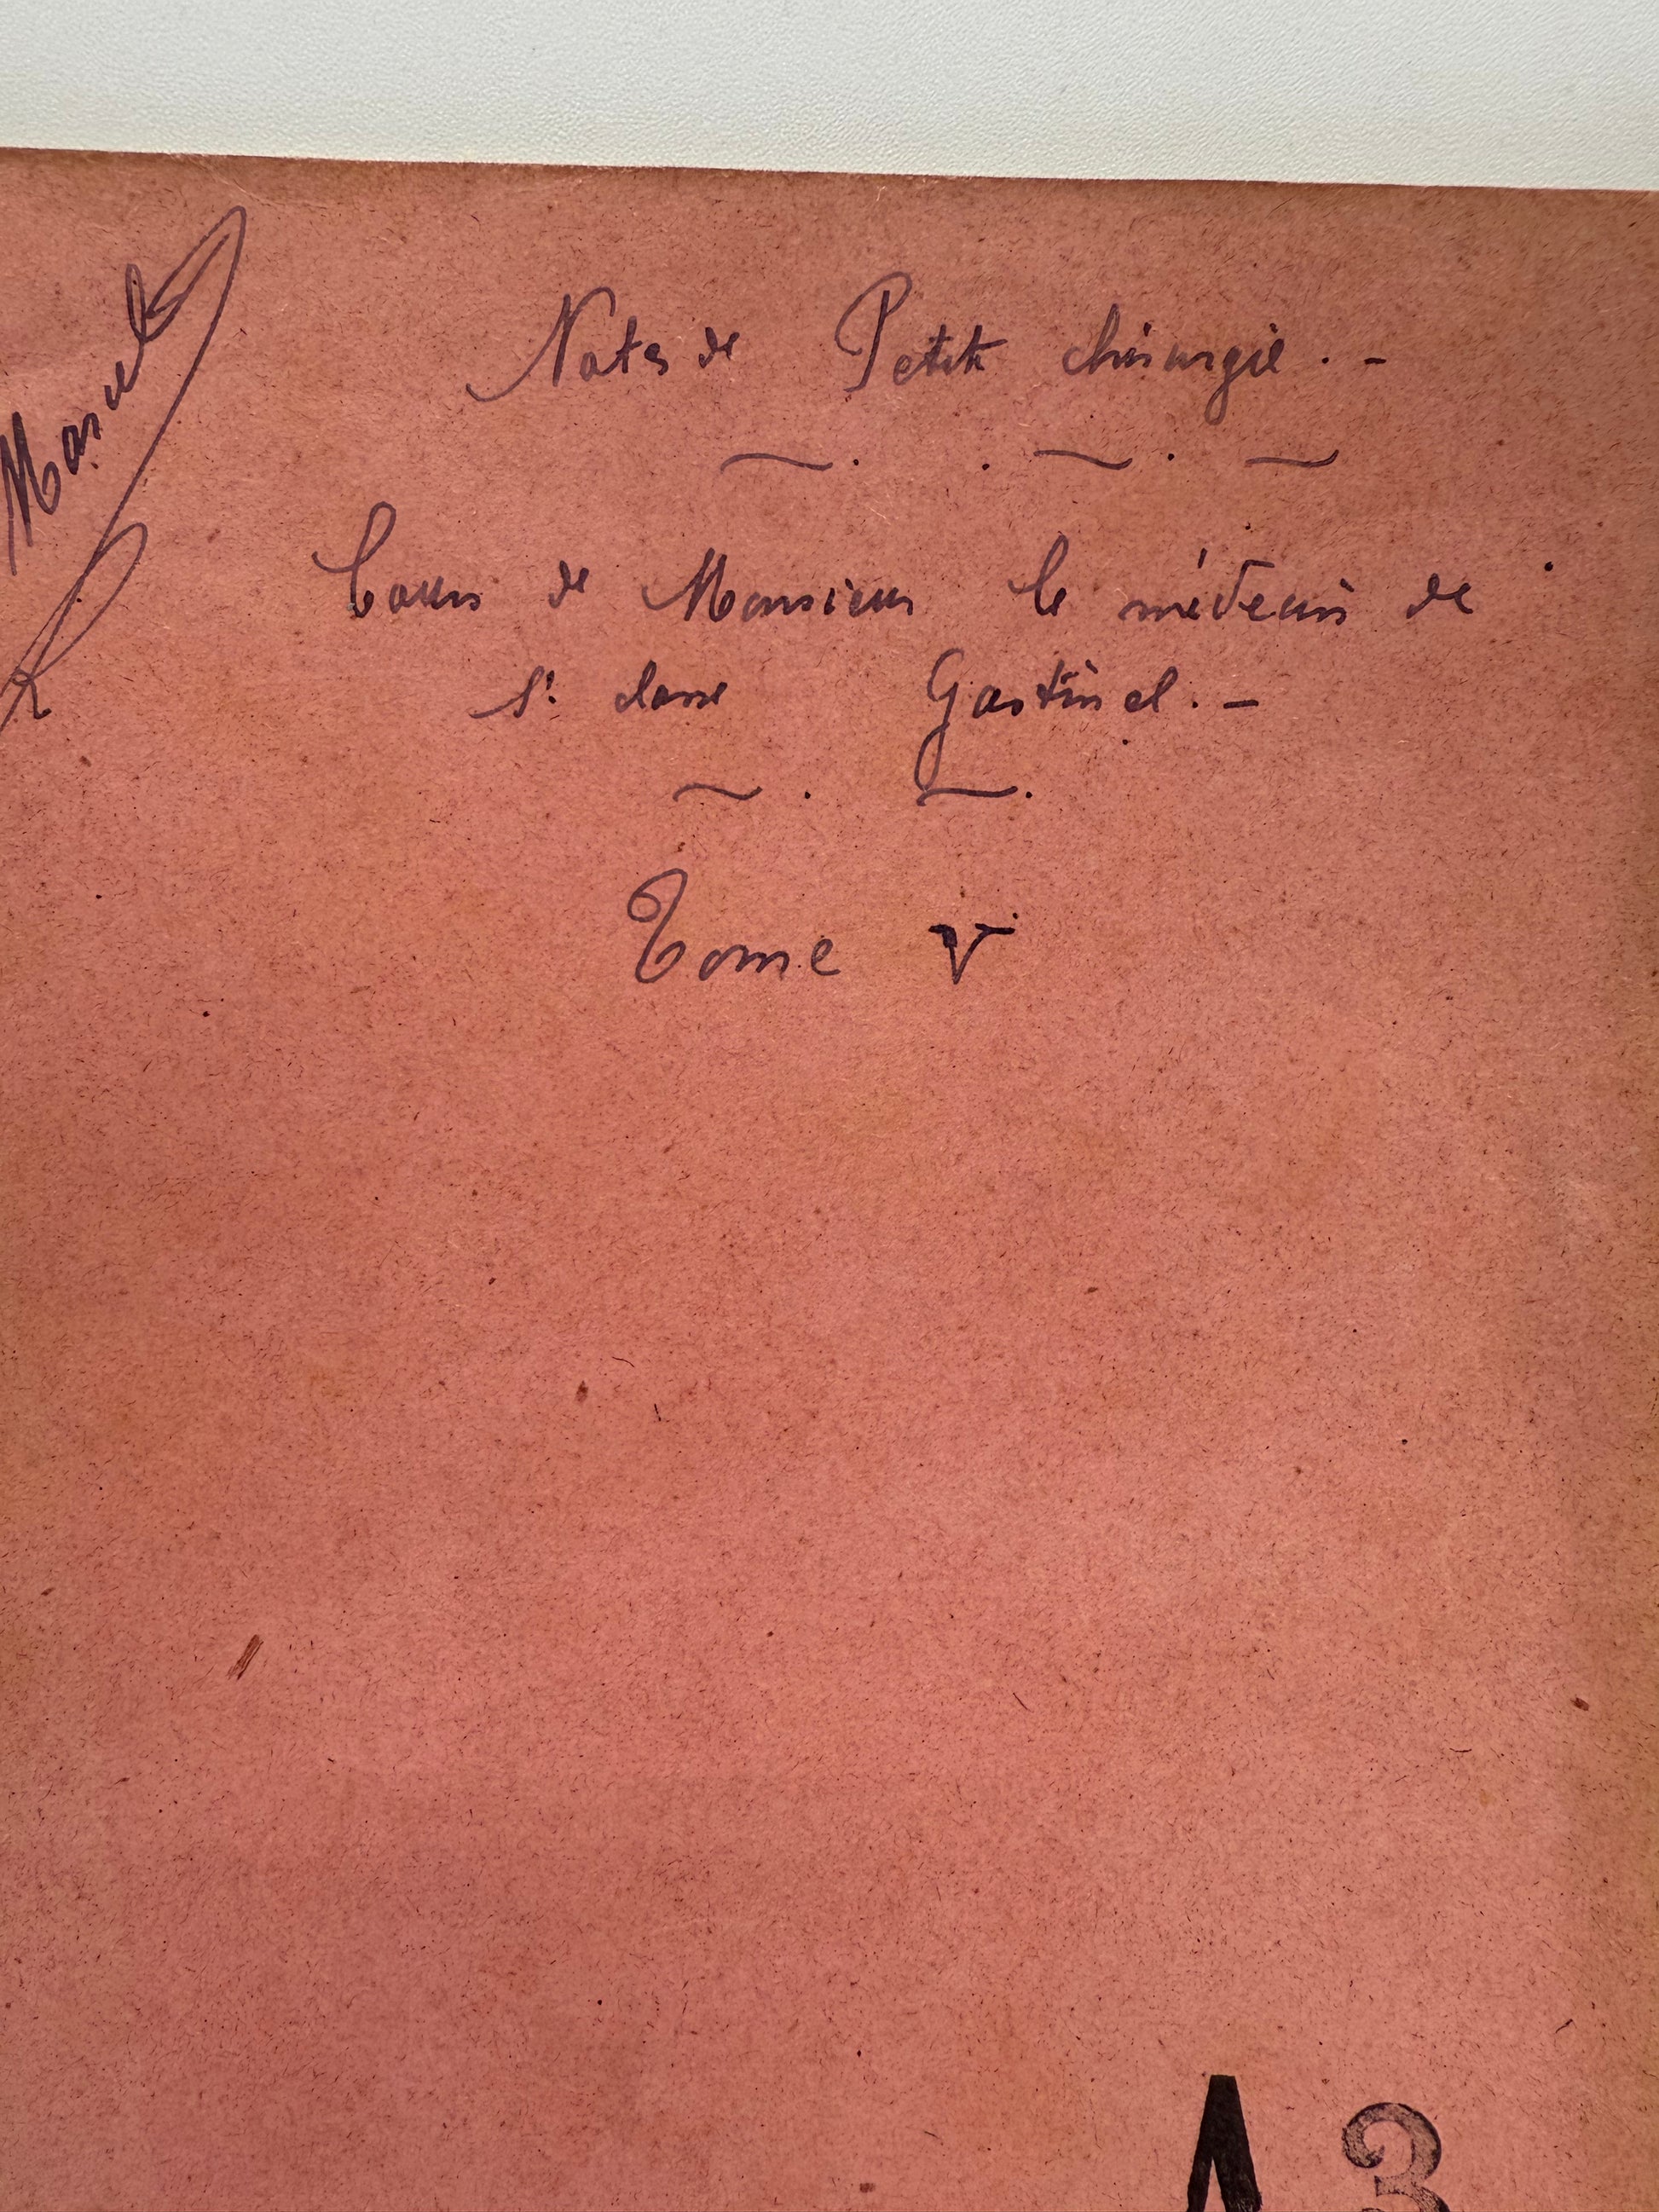 Notes de Petite chirurgie. -
Cours de Monsieur le médecin de
1e classe Gastinel. -
Tome V
A 3